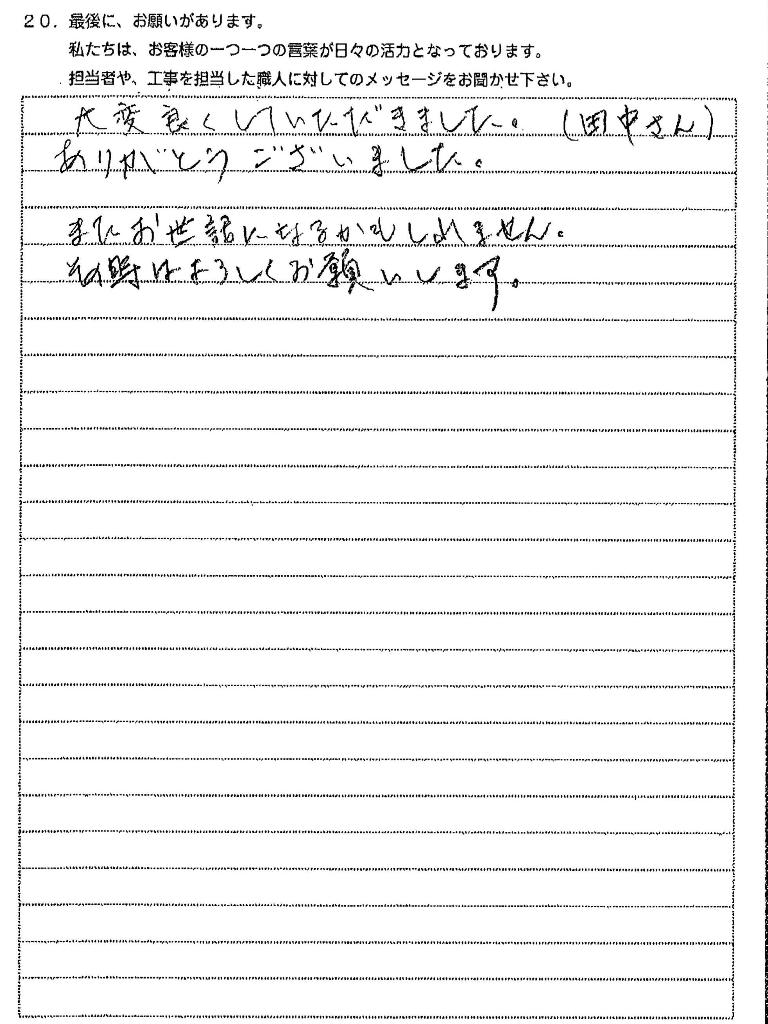 20．最後に、お願いがあります。
私たちは、お客様の一つ一つの言葉が日々の活力となっております。
担当者や、工事を担当した職人に対してのメッセージをお聞かせ下さい。
大変良くしていただきました。（田中さん）
ありがとうございました。
またお世話になるかもしれません。
その時はよろしくお願いします。